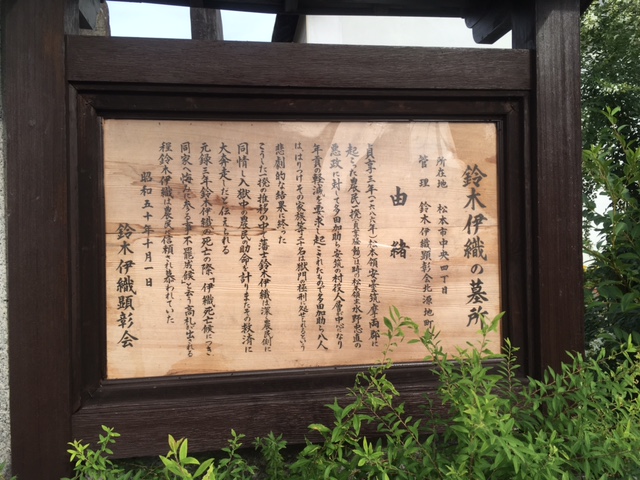 鈴木伊織の墓所
所在地 松本市中央四丁目
管理 鈴木伊織顕彰会北源地町
由緒
貞享三年(一六八六年)松本領安曇筑摩両郡に
起こった農民一揆(貞享騒動)は時の松本領主水野忠直の
悪政に対して多田加助ら安曇の村役人層が中心になり
年貢の軽減を要求し起こされたもので多田加助ら八人
は、はりつけ、その家族等二十名は獄門の極刑に処せられるという
悲劇的な結果に終った
こうした一揆の推移の中で藩士鈴木伊織は深く農民側に
同情し入獄中の農民の助命を計りまたその救済に
大奔走したと伝えられる
元禄三年鈴木伊織が死亡の際「伊織死亡候につき
同家へ悔みに参る事不罷成候」と云う高札が出される
程鈴木伊織は農民に信頼され慕われていた
昭和五十年十月一日
鈴木伊織顕彰会